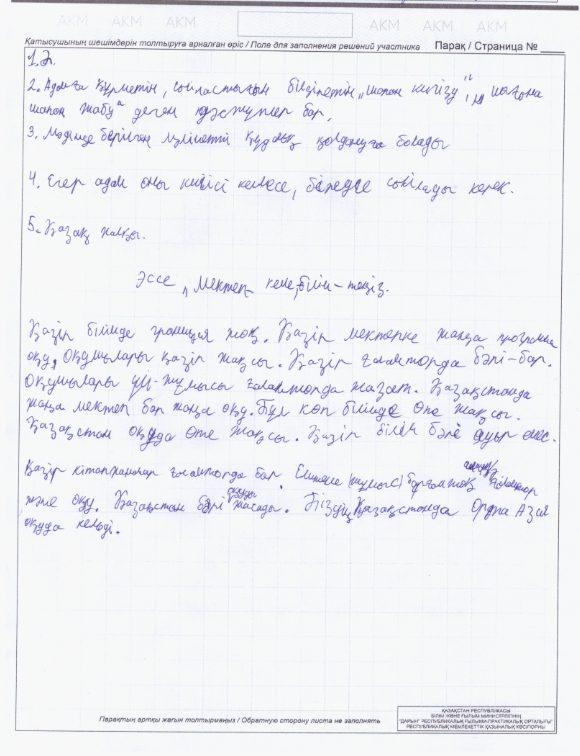 АКМ АКМ АКМ АКМ АКМ
Қатысушының шешімдерін толтыруға арналған өріс / Поле для заполнения решений участника Парақ / Страница №
1. Ә.
2. Адамға құрметін, сыйластығын білдіретін „шапан кигізу“, „
шапан жабу“ деген дәстүрлер бар.
3. Мәдише берілген мүлікетті құдалық қолдануға болады
4. Егер адам оны кигісі келмесе, біреуге сыйлауы керек.
5. Қазақ халқы.
Эссе „Мектеп – кеме, білім – теңіз.
Қазір білімде границия жоқ. Қазір мектепке жаңа программа
оқу, Оқушылары қазір жақсы. Қазір ғаламторда бәрі-бар.
Оқушылары үй-жұмысы ғаламторда жазат. Қазақстанда
жаңа мектеп бар жаңа оқу. Бұл көп білімде өте жақсы.
Қазақстан оқуда өте жақсы. Қазір білім бәрі ауыр емес.
Қазір кітапханалар ғаламторда бар.
және оқу. Қазақстан бәрі оқуды жасады. Біздің Қазақстанда Орта Азия
оқуда келеді.
Парақтың артқы жағын толтырмаңыз / Обратную сторону листа не заполнять
ҚАЗАҚСТАН РЕСПУБЛИКАСЫ
БІЛІМ ЖӘНЕ ҒЫЛЫМ МИНИСТРЛІГІНІҢ
"ДАРЫН" РЕСПУБЛИКАЛЫҚ ҒЫЛЫМИ-ПРАКТИКАЛЫҚ ОРТАЛЫҒЫ"
РЕСПУБЛИКАЛЫҚ МЕМЛЕКЕТТІК ҚАЗЫНАЛЫҚ КӘСІПОРНЫ